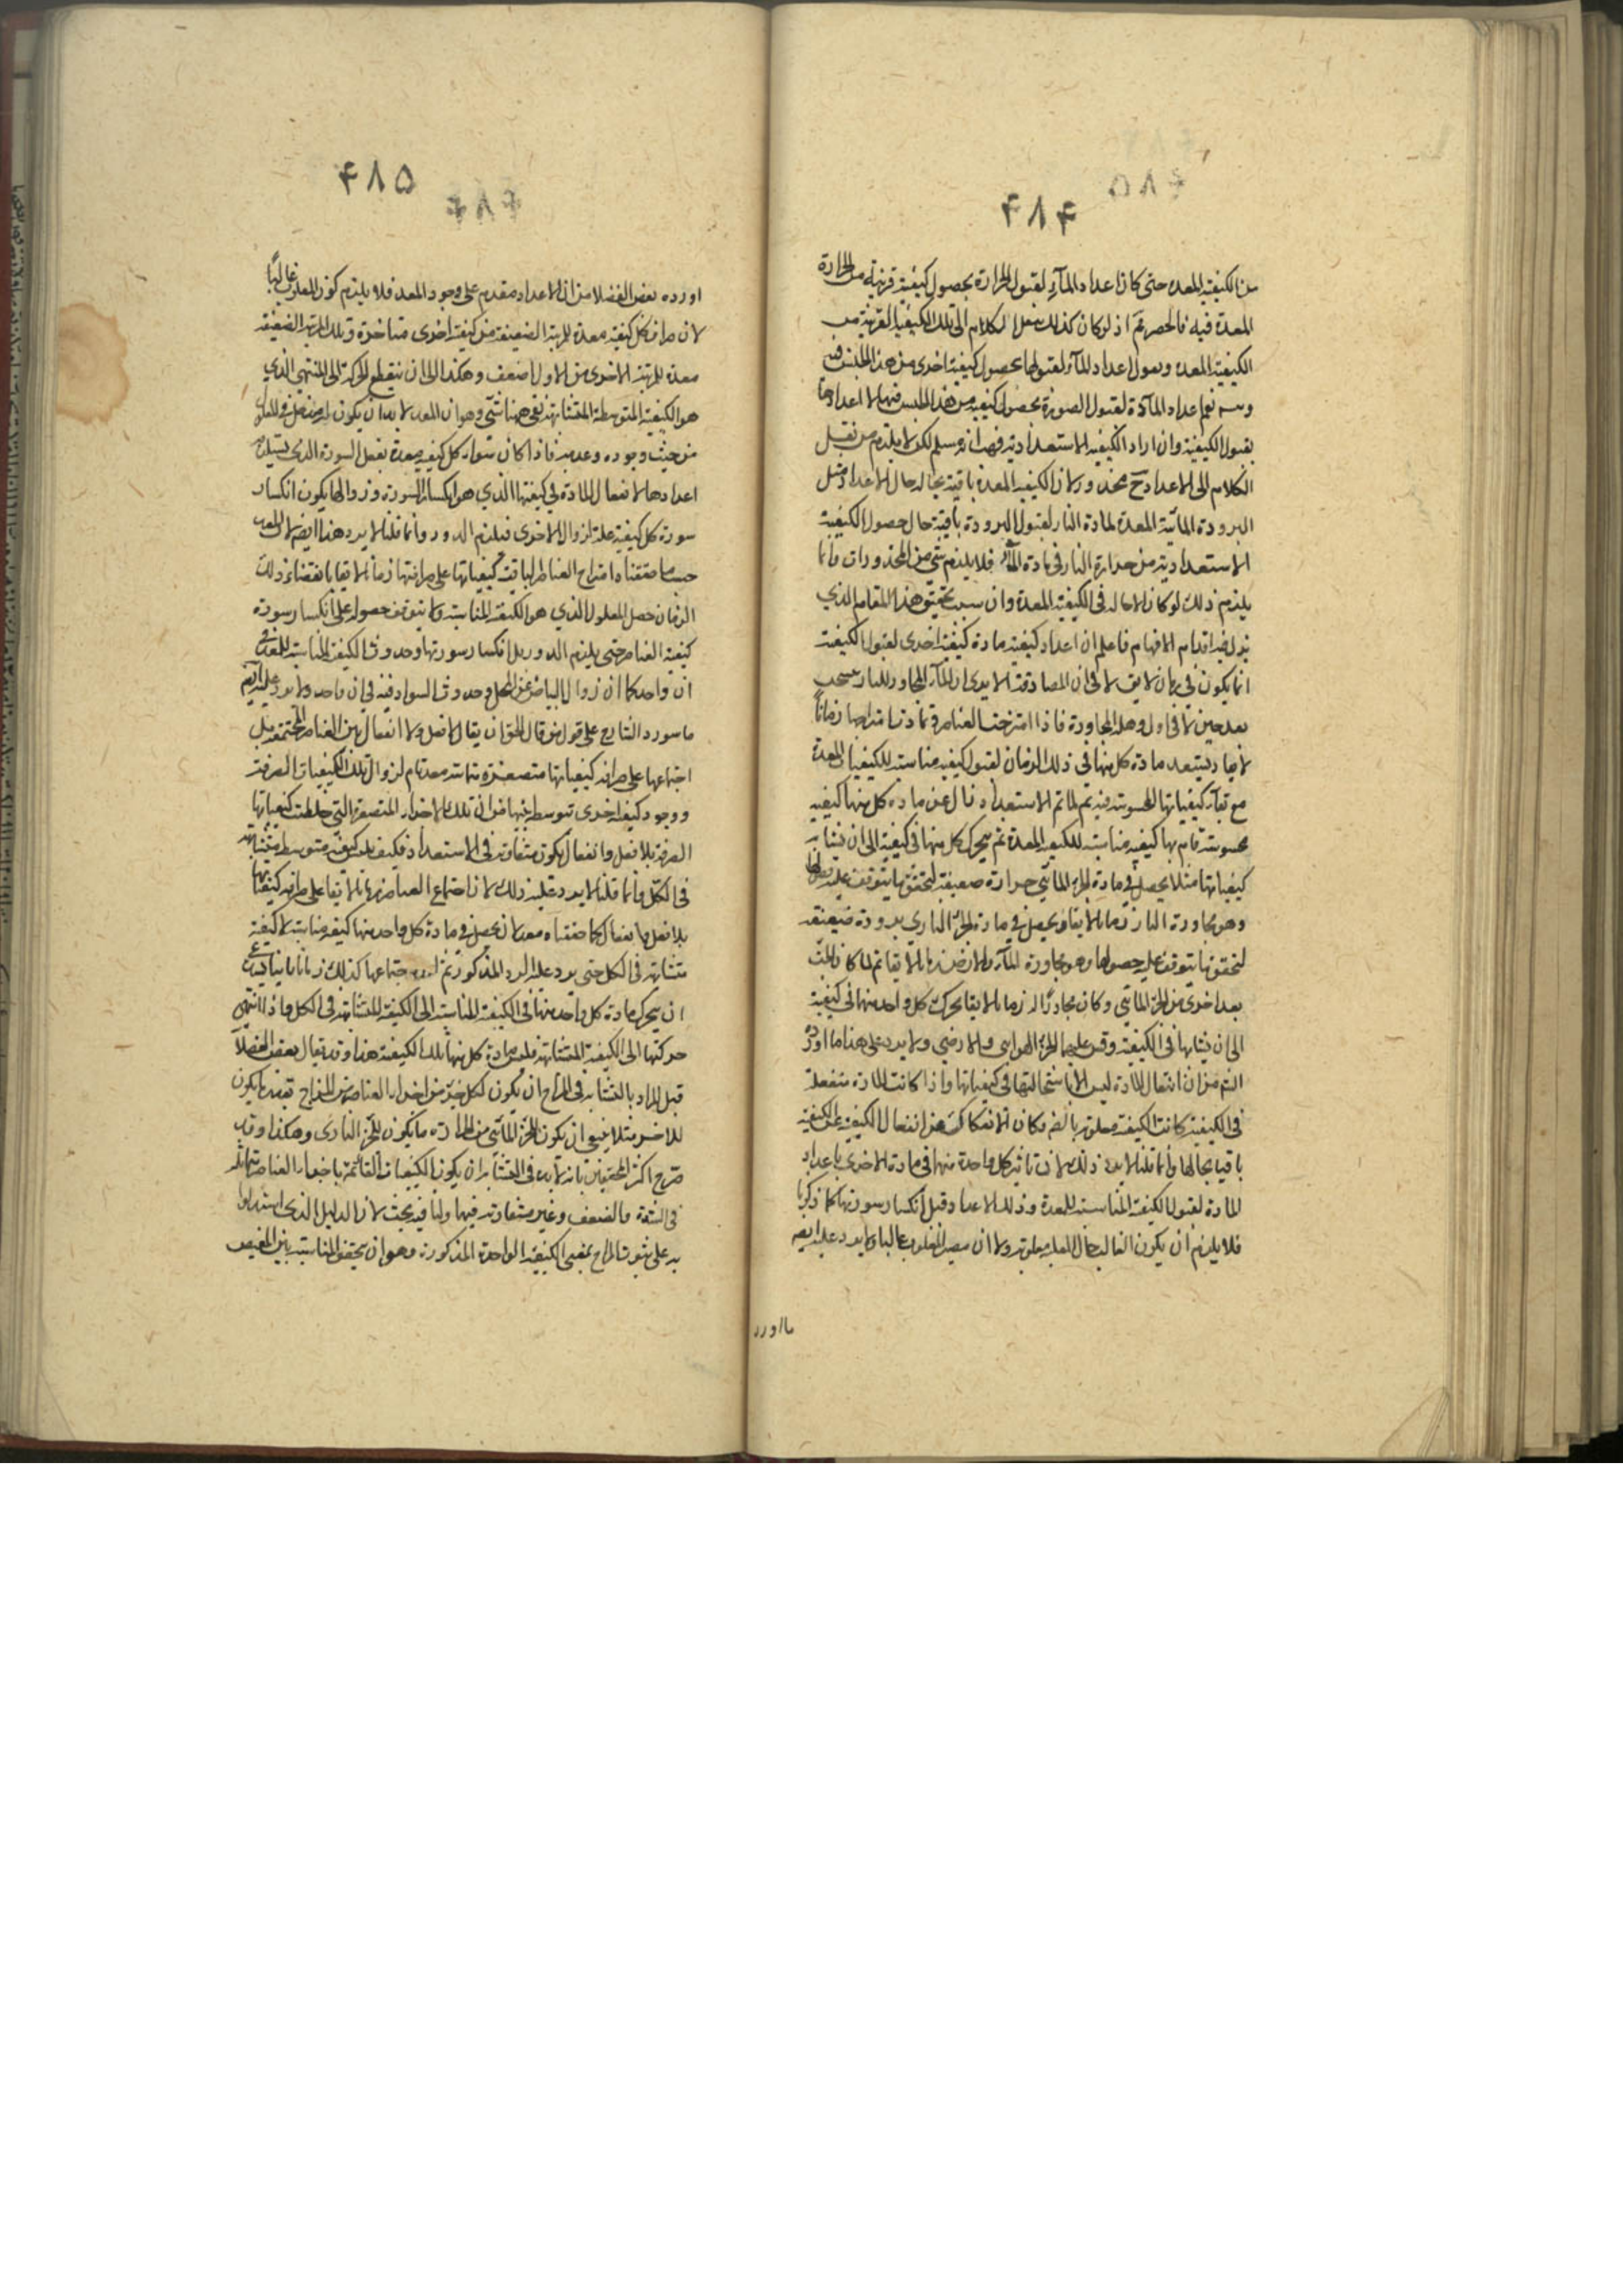 ۴۸۴
من الكيفية المعدة حتى كان اعداد الماء لقبول الحرارة بحصول كيفية قريبة من الحرارة
المعدة فيه فالحصر ثم اذ لو كان كذلك ننقل الكلام الى تلك الكيفية القريبة من
الكيفية المعدة ونقول اعداد الماء لقبولها بحصول كيفية اخرى من هذا الجنس فيه
نعم اعداد المادة لقبول الصورة بحصول كيفية من هذا الجنس فيها لا اعدادها
بقبول الكيفية وان اراد الكيفية الاستعدادية فهب انه مسلم لكن لا يلزم من نقل
الكلام الى الاعداد ح محذور لان الكيفية المعدة باقية بحالها حال الاعداد مثل
البرودة المائية المعدة لمادة النار لقبول البرودة باقية حال حصول الكيفية
الاستعدادية من حرارة النار في مادة الماء فلا يلزم شئ من المحذورات وانما
يلزم ذلك لو كان الاحالة في الكيفية المعدة وان سبب تحقيق هذا المقام الذي
يزل فيه اقدام الافهام فاعلم ان اعداد كيفية مادة كيفية اخرى لقبول الكيفية
انما يكون في زمان لا في ان المصادفة الا يرى ان الماء المجاور للنار يسخن
بعد حين لا في اول وهلة المجاورة فاذا امتزجت العناصر وتمادت امتزاجها زمانا
يستعد مادة كل منها في ذلك الزمان لقبول كيفية مناسبة للكيفيات المعدة
مع بقاء كيفياتها المحسوسة فيه ثم لما تم الاستعداد زال عن مادة كل منها كيفية
محسوسة قام بها كيفية مناسبة للكيفية المعدة ثم يتحرك كل منها في كيفية الى ان يتشابه
كيفياتها مثلا يحصل في مادة الجزء المائي حرارة ضعيفة لتحقق ما يتوقف عليه حصولها
وهو مجاورة النار زمانا ويحصل في مادة الجزء الناري برودة ضعيفة
لتحقق ما يتوقف عليه حصولها وهو مجاورة الماء
بعد اخرى من الجزء المائي وكان مجاورا له زمانا يتحرك كل واحد منها في كيفية
الى ان يتشابها في الكيفية وقس عليهما الجزء الهوائي والارضي ولا يرد على هذا ما اورده
الشم من ان انفعال المادة ليس الا باستحالتها في كيفياتها واذا كانت المادة منفعلة
في الكيفية كانت الكيفية مغلوبة بالضرورة فكان الانفكاك عن انفعال الكيفية عن الكيفية
باقيا بحالها وانما قلنا لا يرد ذلك لان تاثير كل واحدة منها في مادة الاخرى باعداد
المادة لقبول الكيفية المناسبة للمعدة وذلك الاعداد قبل انكسار سورتها كما ذكرنا
فلا يلزم ان يكون الغالب حال الغلبة مغلوبة ولا ان يصير المغلوب غالبا ولا يرد عليه ايضا
ما اورد
۴۸۵
اورده بعض الفضلا من ان الاعداد مقدم على وجود المعد فلا يلزم كون المغلوب غالبا
لان صرافة كل كيفية معدة للمرتبة الضعيفة من كيفية اخرى متاخرة وتلك المرتبة الضعيفة
معدة للمرتبة الاخرى من الاول اضعف وهكذا الى ان ينقطع الحركة الى المنتهى الذي
هو الكيفية المتوسطة المتشابهة بقي ههنا شئ وهو ان المعد لا بد ان يكون له مدخل في المعلول
من حيث وجوده وعدمه فاذا كان سورة كل كيفية معدة بفعل السورة الذي يستلزم
اعدادها لانفعال المادة في كيفيتها الذي هو انكسار السورة وزوالها يكون انكسار
سورة كل كيفية علة لزوال الاخرى فيلزم الدور وانما قلنا لا يرد هذا ايضا لان المعد
حسبما حققنا امتزاج العناصر الباقية كيفياتها على صرافتها زمانا بانقضاء ذلك
الزمان حصل المعلول الذي هو الكيفية المناسبة ولا يتوقف حصوله على انكسار سورة
كيفية العناصر حتى يلزم الدور بل انكسار سورتها وحدوث الكيفية المناسبة للمعدة في
ان واحد كما ان زوال البياض عن المحل وحدوث السواد فيه في ان واحد ولا يرد عليه ايضا
ما سورد الشارح على قول من قال الحق ان يقال لا فعل ولا انفعال بين العناصر المجتمعة بل
اجتماعها على صرافة كيفياتها متصغرة متماسة معد تام لزوال تلك الكيفيات الصرفة
ووجود كيفية اخرى متوسطة بينها من ان تلك الاجزاء المتصغرة التي خلطت كيفياتها
الصرفة بلا فعل وانفعال يكون متفاوتة في الاستعداد فكيف يلبس كيفية متوسطة متشابهة
في الكل وانما قلنا لا يرد عليه ذلك لان اجتماع العناصر زمانا على صرافة كيفياتها
بلا فعل وانفعال كما حققناه معد لان يحصل في مادة كل واحد منها كيفية مناسبة لا كيفية
متشابهة في الكل حتى يرد عليه الرد المذكور ثم اجتماعها كذلك زمانا
ان يتحرك مادة كل واحد منها في الكيفية المناسبة الى الكيفية المتشابهة في الكل واذا انتهى
حركتها الى الكيفية المتشابهة يلبس مادة كل منها بتلك الكيفية هذا وقد يقال بعض الفضلا
قبل المراد بالتشابه في المزاج ان يكون لكل جزء من اجزاء العناصر من المزاج بقدر ما يكون
للاخر مثلا ينبغي ان يكون للجزء المائي من الحرارة ما يكون للجزء الناري وهكذا وقد
صرح اكثر المحققين بانه لا بد في التشابه ان يكون الكيفيات القائمة باجزاء العناصر متماثلة
في الشدة والضعف وغير متفاوتة فيها ولنا فيه بحث لان الدليل الذي استدلوا
به على ثبوت المزاج بمعنى الكيفية الواحدة المذكورة وهو ان تحقق المناسبة بين المفيض